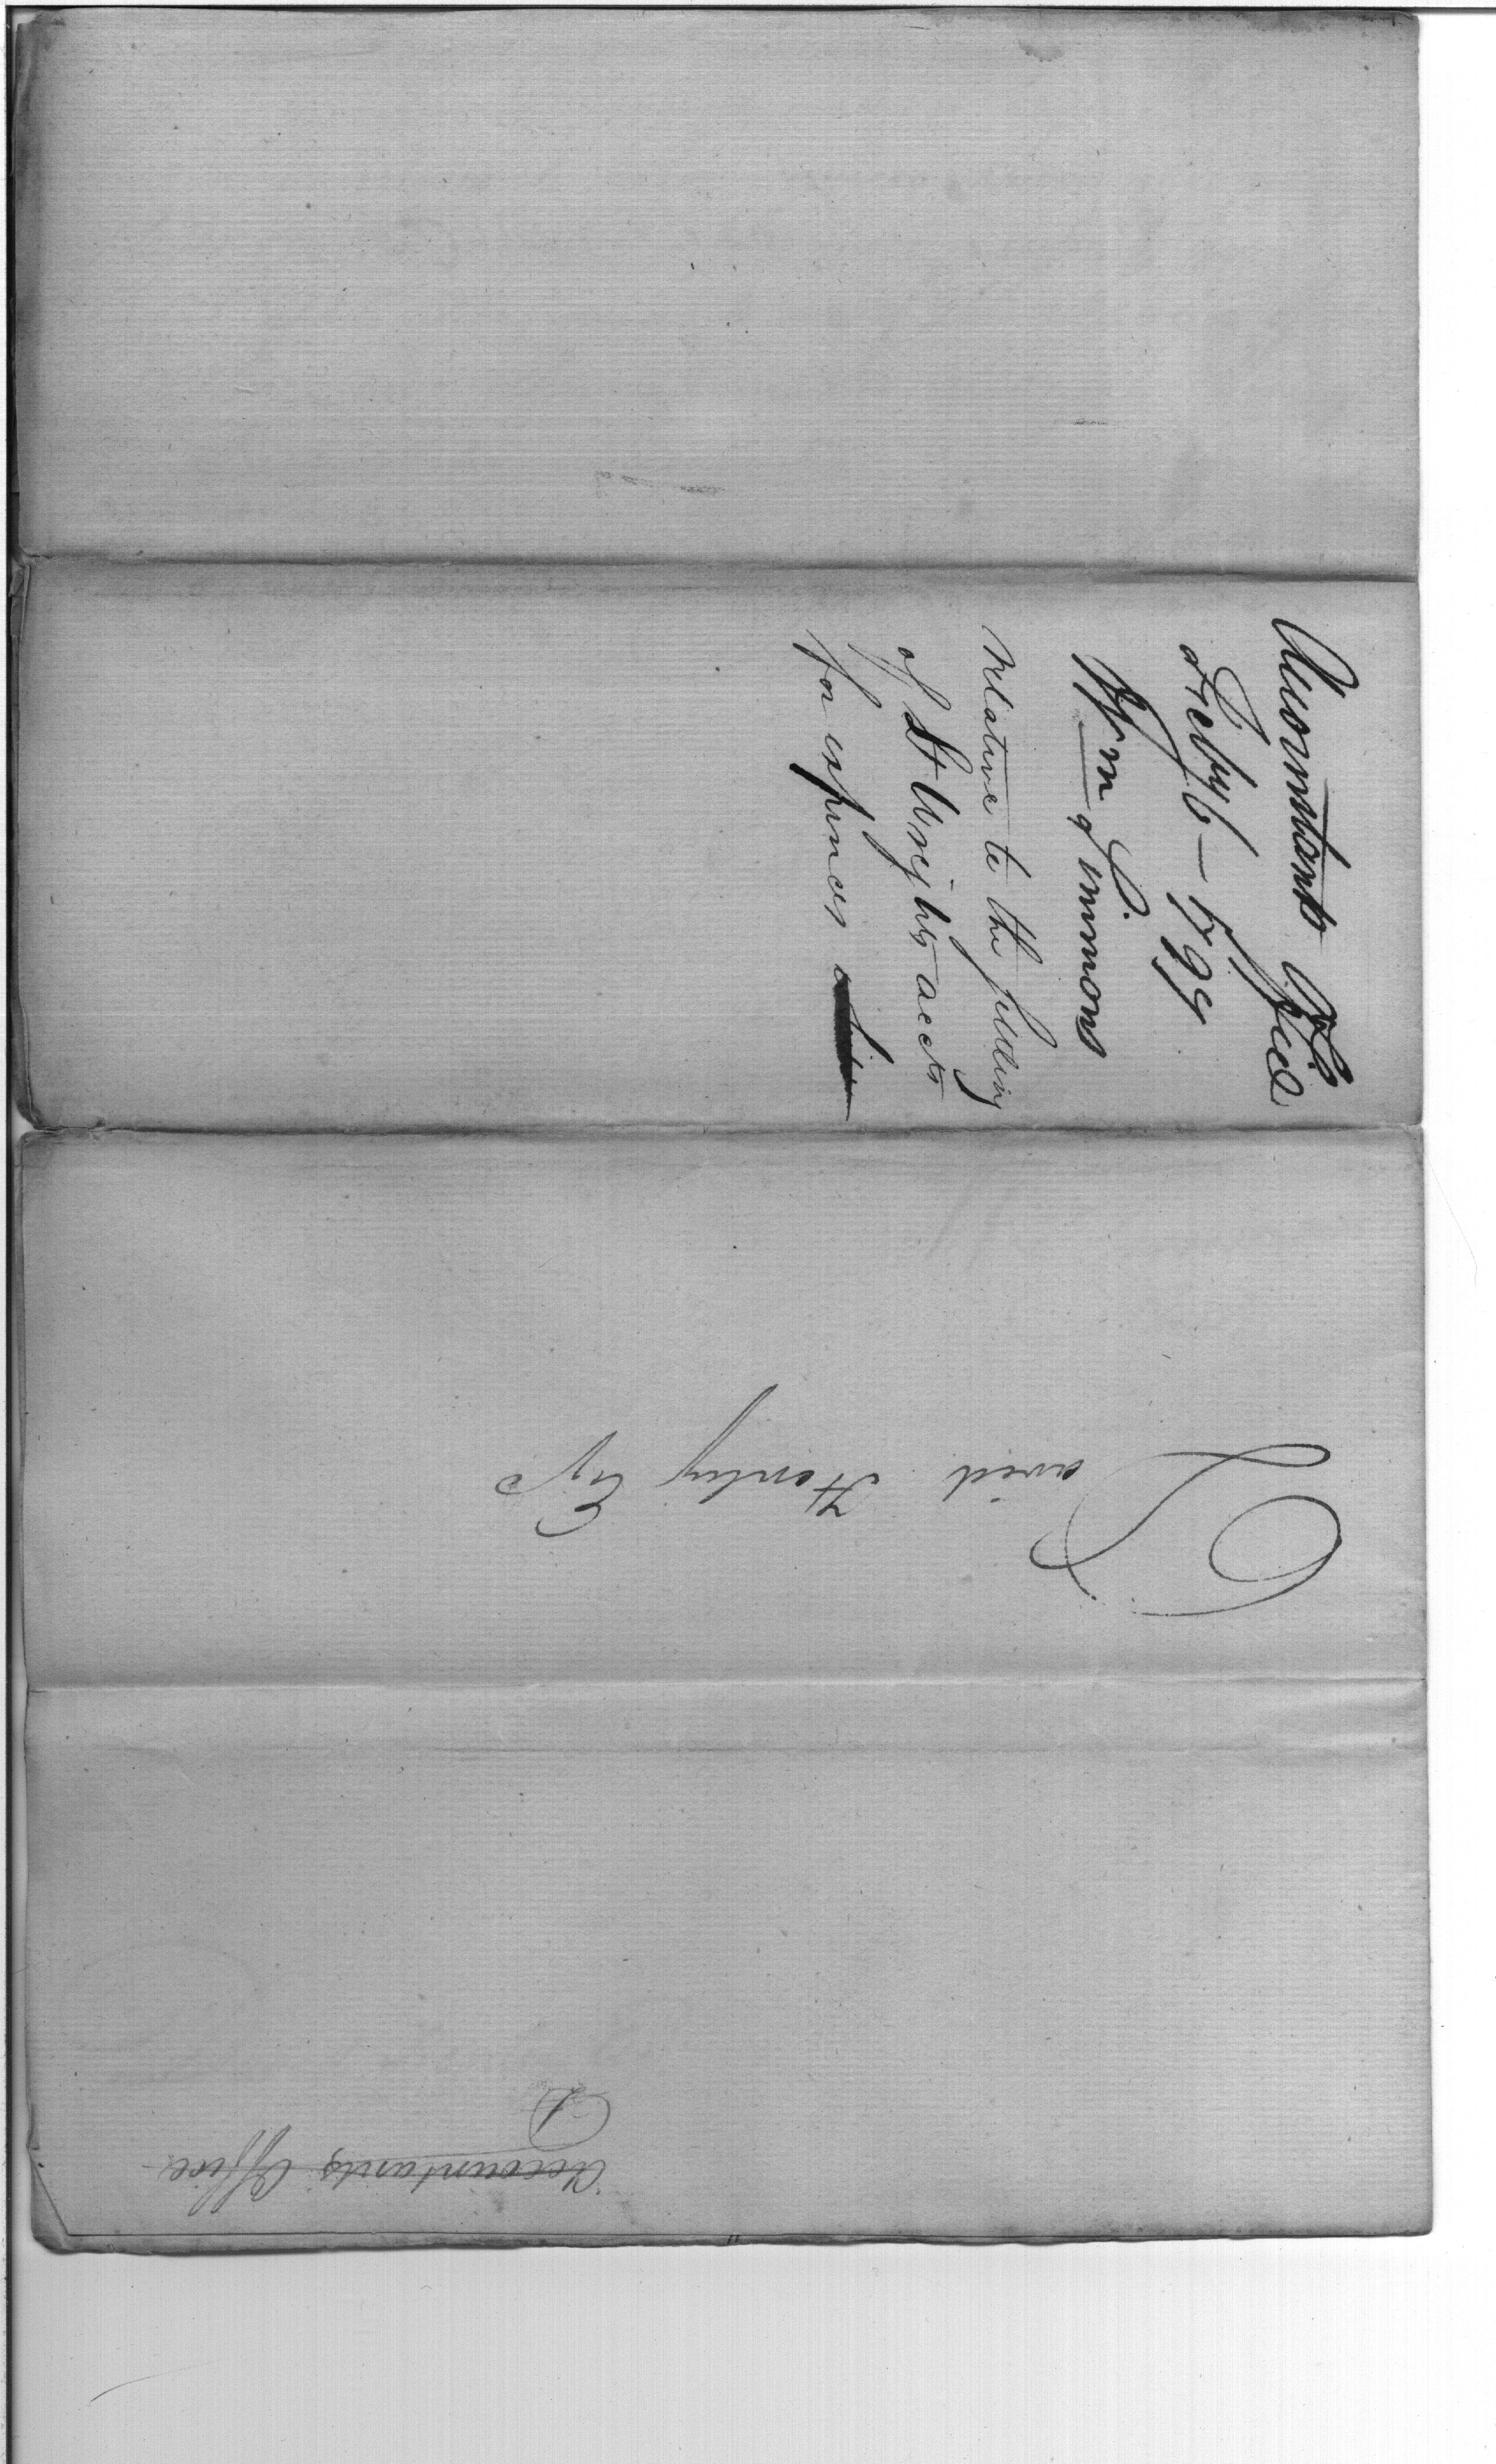 Accountants Office
Feby 6 - 1799
Wm Simmons
Relative to the settling
of Lt Wrights accts
for expences
David Henley Esqr
Accountants Office